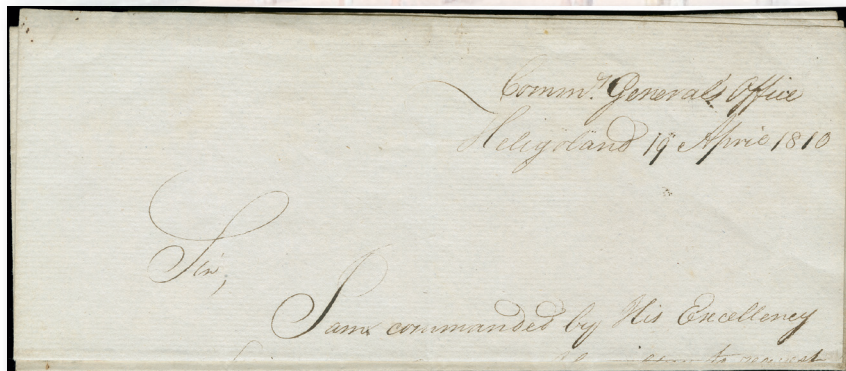 Comm.ʸ General's Office
Heligoland 19 April 1810
Sir,
I am commanded by His Excellency
to request